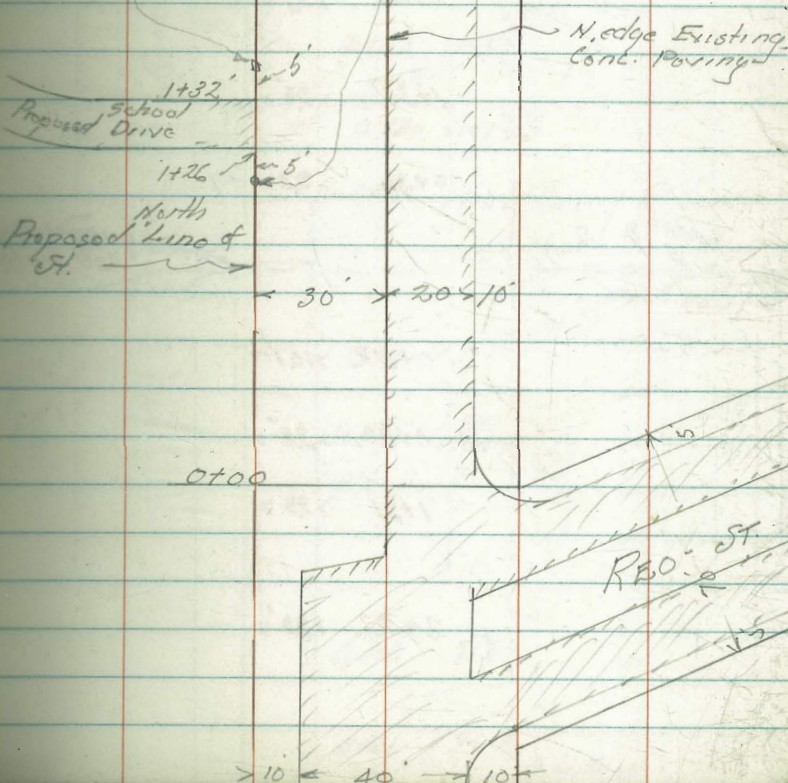 N. edge Existing
Conc. Paving
5'
1+32'
Proposed School
Drive
1+26
5'
North
Proposed Line of
St.
30' 20 10'
0+00
5
St.
10' 40' 10'